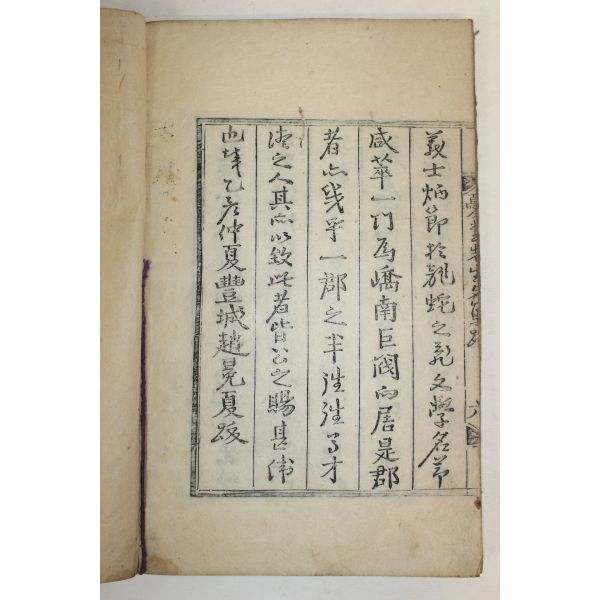 義士炳節於龍蛇之亂文學名節
咸萃一門爲嶠南巨閥而居是郡
者亦幾乎一郡之半往往才
之人其所以致此者皆公之賜甚偉
也哉乙亥仲夏豐城趙夏跋
六